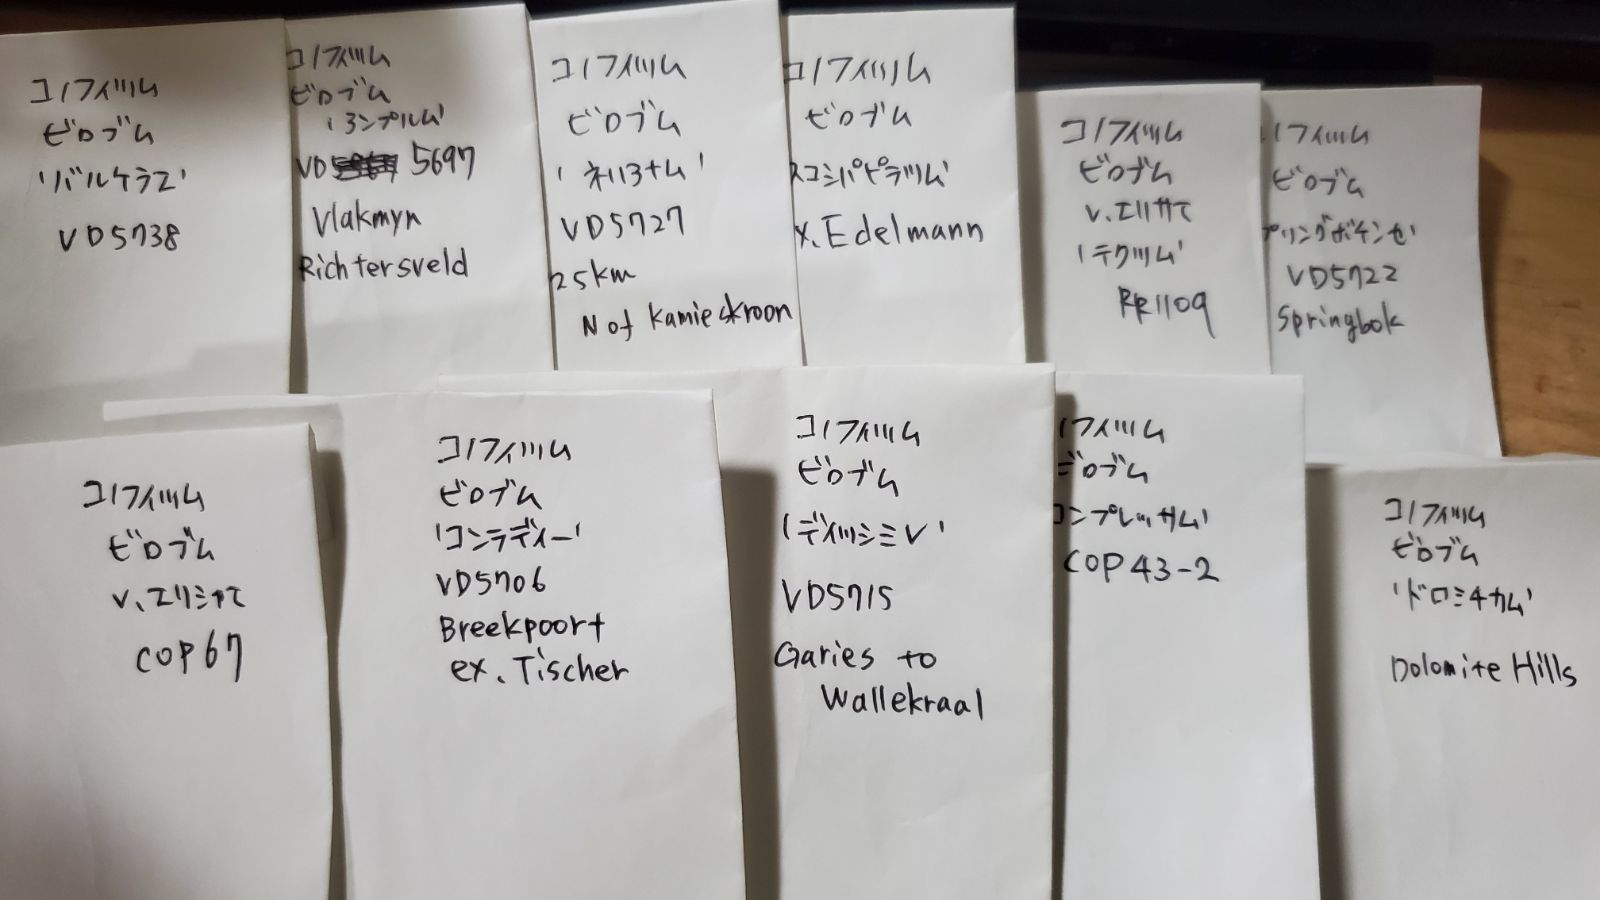 コノフィツム
ビロブム
'バルケラエ'
VD5738
コノフィツム
ビロブム
VD 5697
Vlakmyn
Richtersveld
コノフィツム
ビロブム
VD5727
25km
N of Kamieskroon
コノフィツム
ビロブム
スコシパピラツム'
x. Edelmann
コノフィツム
ビロブム
v. エリサエ
'テクツム'
RR1109
ノフィツム
ビロブム
プリングボケンセ'
VD5722
Springbok
コノフィツム
ビロブム
v. エリシャエ
COP67
コノフィツム
ビロブム
'コンラディー'
VD5706
Breekpoort
ex. Tischer
コノフィツム
ビロブム
VD5715
Garies to
Wallekraal
ノフィツム
ビロブム
コンプレッサム'
COP43-2
コノフィツム
ビロブム
'ドロミチカム'
Dolomite Hills